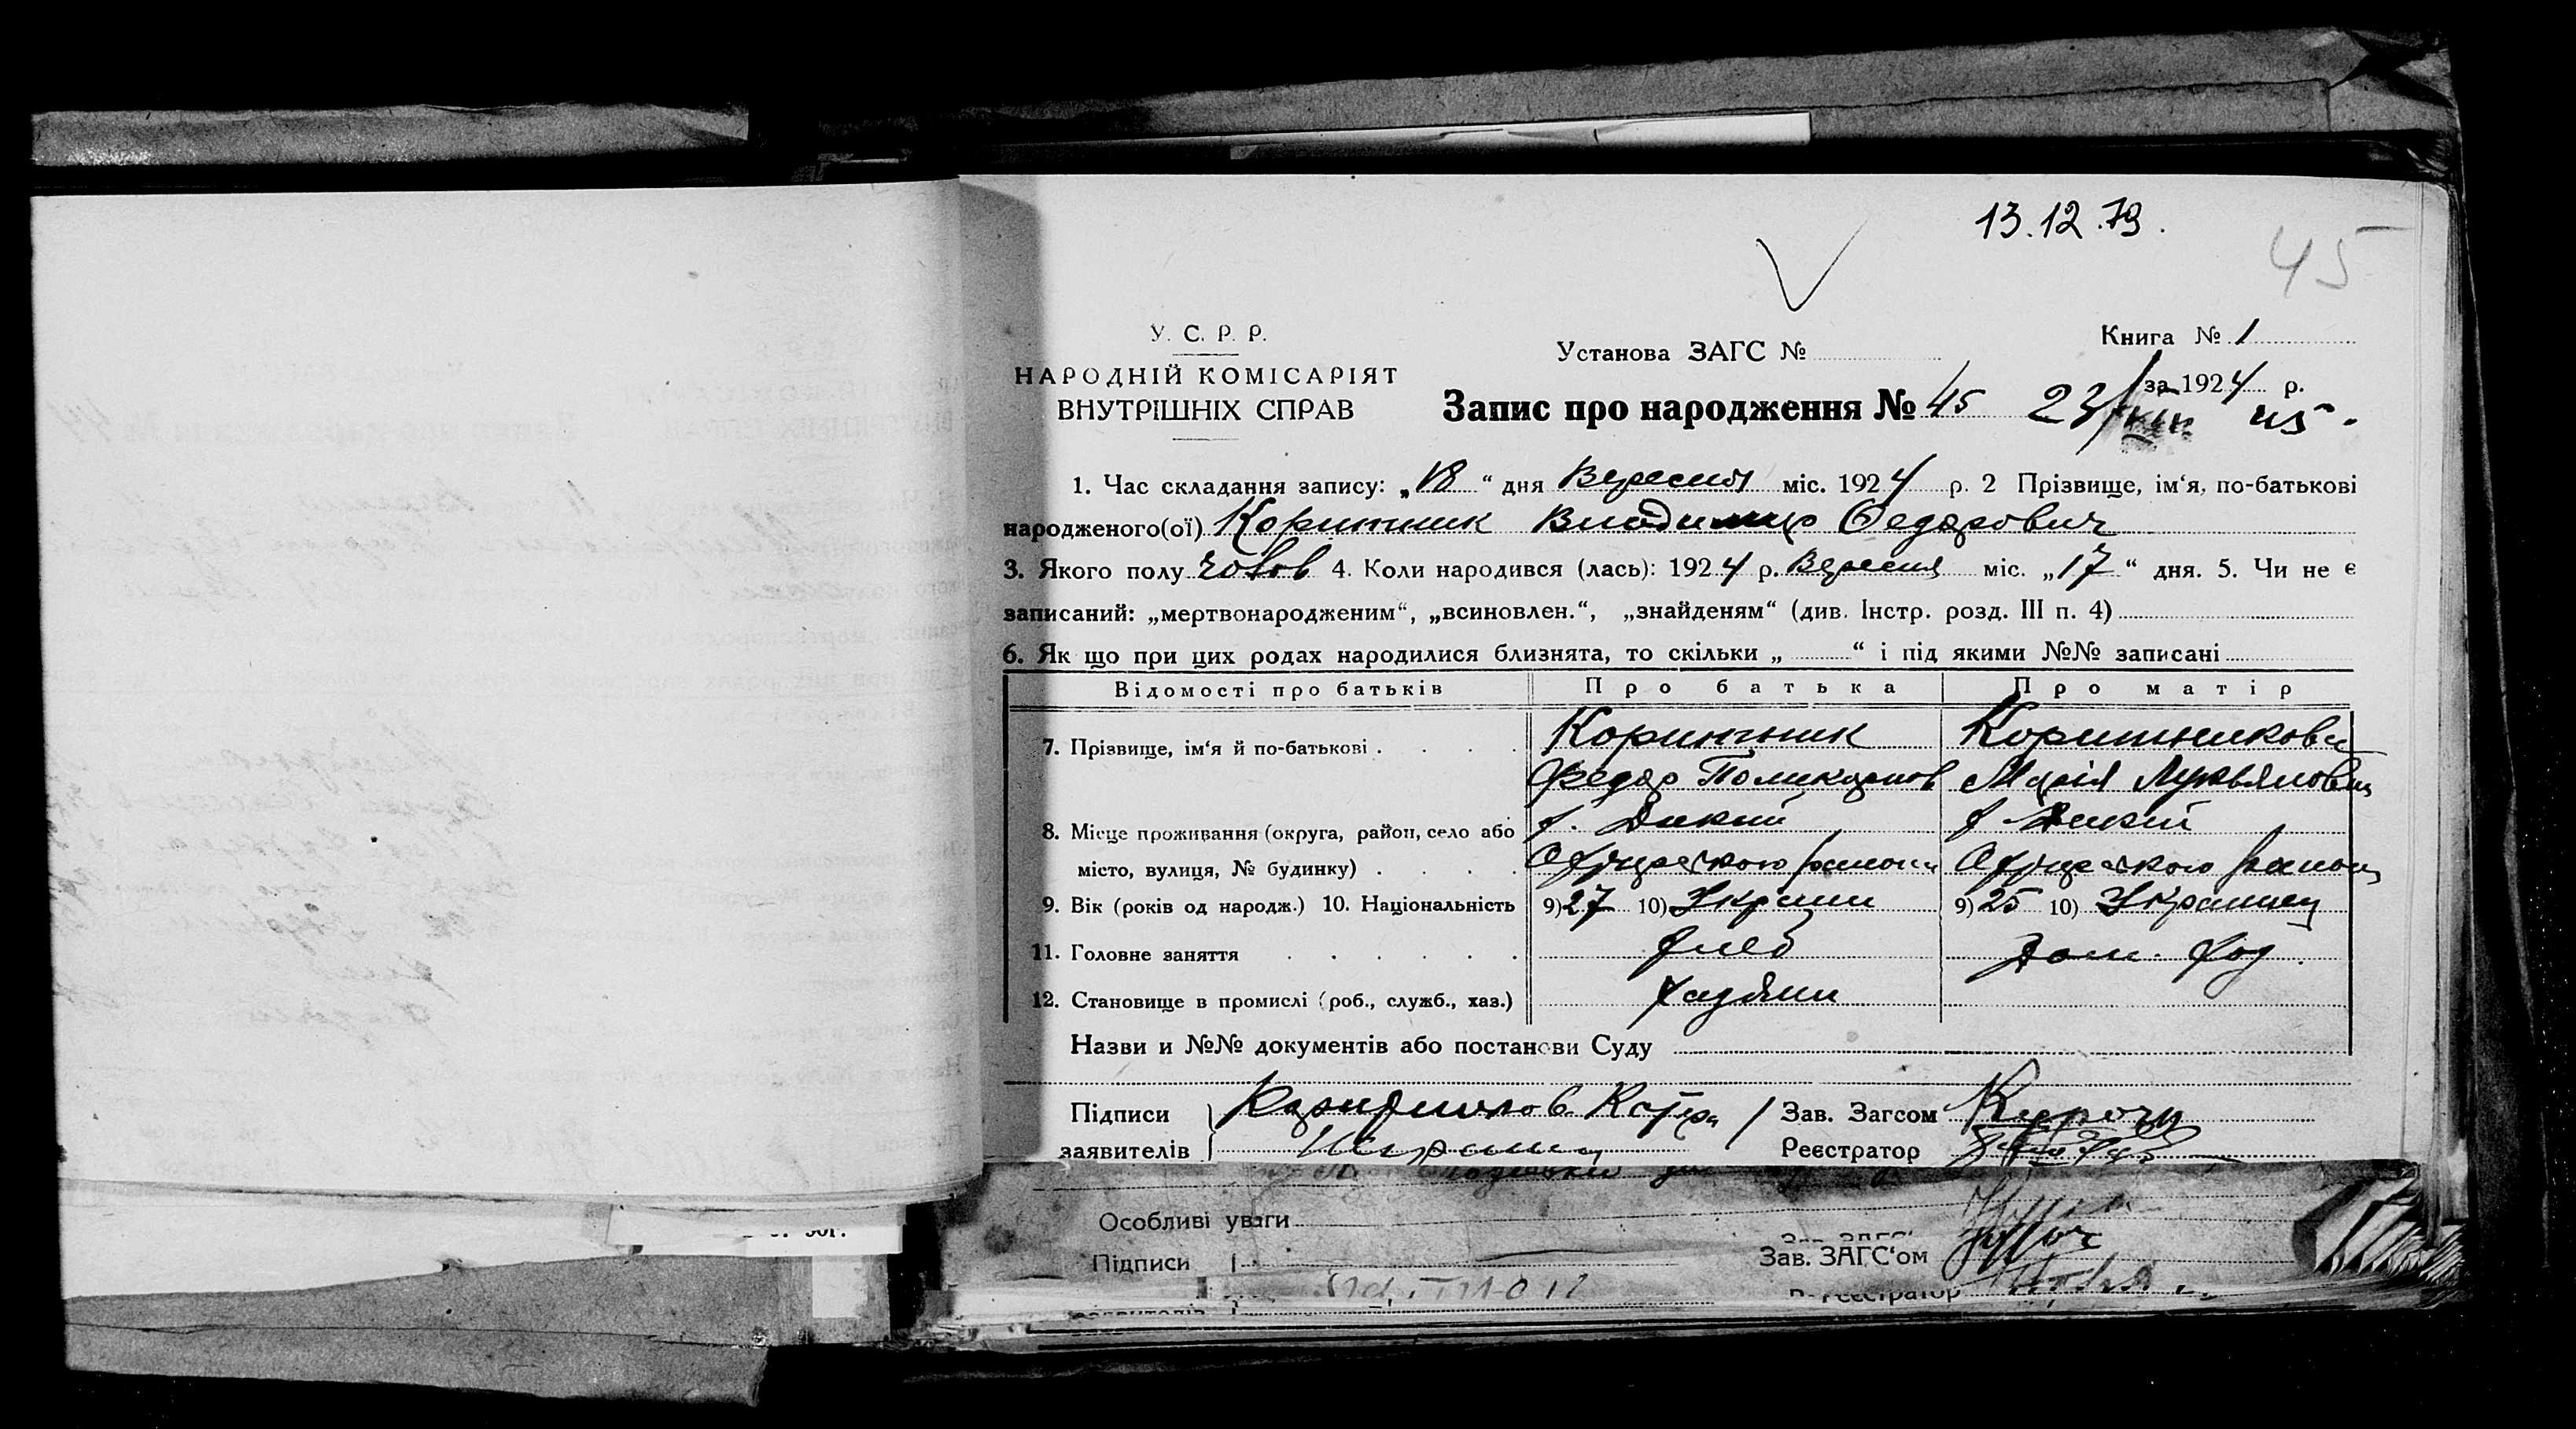 13.12.79.
45
У. С. Р. Р.
НАРОДНІЙ КОМІСАРІЯТ
ВНУТРІШНІХ СПРАВ
Установа ЗАГС №
Книга № 1
за 1924 р.
Запис про народження № 45 23/ 45.
1. Час складання запису: „18“ дня Вересня міс. 1924 р. 2 Прізвище, ім‘я, по-батькові
народженого(ої) Коритник Владимир Федорович
3. Якого полу чолов 4. Коли народився (лась): 1924 р. Вересня міс. „17“ дня. 5. Чи не є
записаний: „мертвонародженим“, „всиновлен.“, „знайденям“ (див. Інстр. розд. III п. 4)
6. Як що при цих родах народилися близнята, то скільки „ “ і під якими №№ записані
Відомості про батьків Про батька Про матір
7. Прізвище, ім‘я й по-батькові Коритник Коритникова
Федор Поликарпов Марія Лукьяновна
8. Місце проживання (округа, район, село або х. Дикий х. Дикий
місто, вулиця, № будинку) района района
9. Вік (років од народж.) 10. Національність 9) 27 10) Украин 9) 25 10) Украинец
11. Головне заняття хлеб Дом. хоз.
12. Становище в промислі (роб., служб., хаз.) хазяин
Назви и №№ документів або постанови Суду
Підписи
заявителів
Зав. Загсом
Реєстратор
Особливі уваги
Підписи
Зав. ЗАГС‘ом
Реєстратор